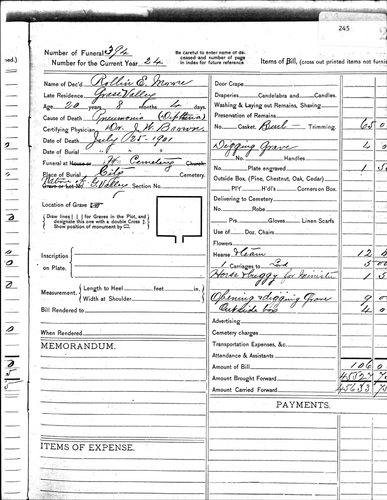 245
Number of Funeral 394
Number for the Current Year 24
Be careful to enter name of de-
ceased and number of page
in index for future reference
Items of Bill, (cross out printed items not furni
Name of Dec'd Rollie E. Moore
Late Residence Grass Valley
Age 20 years 8 months 4 days.
Cause of Death Pneumonia (Diphtheria)
Certifying Physician Dr. J. W. Browne
Date of Death July 25 - 1901
Date of Burial " "
Funeral at House or Cemetery Church
Place of Burial City Cemetery.
Grave or Lot No. G. Valley Section No.
Location of Grave
Draw lines [ ] for Graves in the Plot, and
designate this one with a double Cross
Show position of monument by
Inscription
on Plate.
Measurement.
Length to Heel feet in.
Width at Shoulder
Bill Rendered to
When Rendered
MEMORANDUM.
ITEMS OF EXPENSE.
Door Crape
Draperies Candelabra and Candles.
Washing & Laying out Remains, Shaving
Preservation of Remains
No. Casket, Burl Trimming. 65 0
Digging Grave 4 0
No. Handles
Plate engraved 1 5
Outside Box, (Pine, Chestnut, Oak, Cedar)
P'l'Y H'd'l's Corners on Box.
Delivering to Cemetery
No. Robe
Prs. Gloves Linen Scarfs
Use of Doz. Chairs
Flowers
Hearse & team 12
1 Carriages to 5 00
Horse & buggy for Minister 1 5
Opening & digging Grave 9 0
Outside box 4 0
Advertising
Cemetery charges
Transportation Expenses, &c.
Attendance & Assistants
Amount of Bill 106 0
Amount Brought Forward
Amount Carried Forward
PAYMENTS.